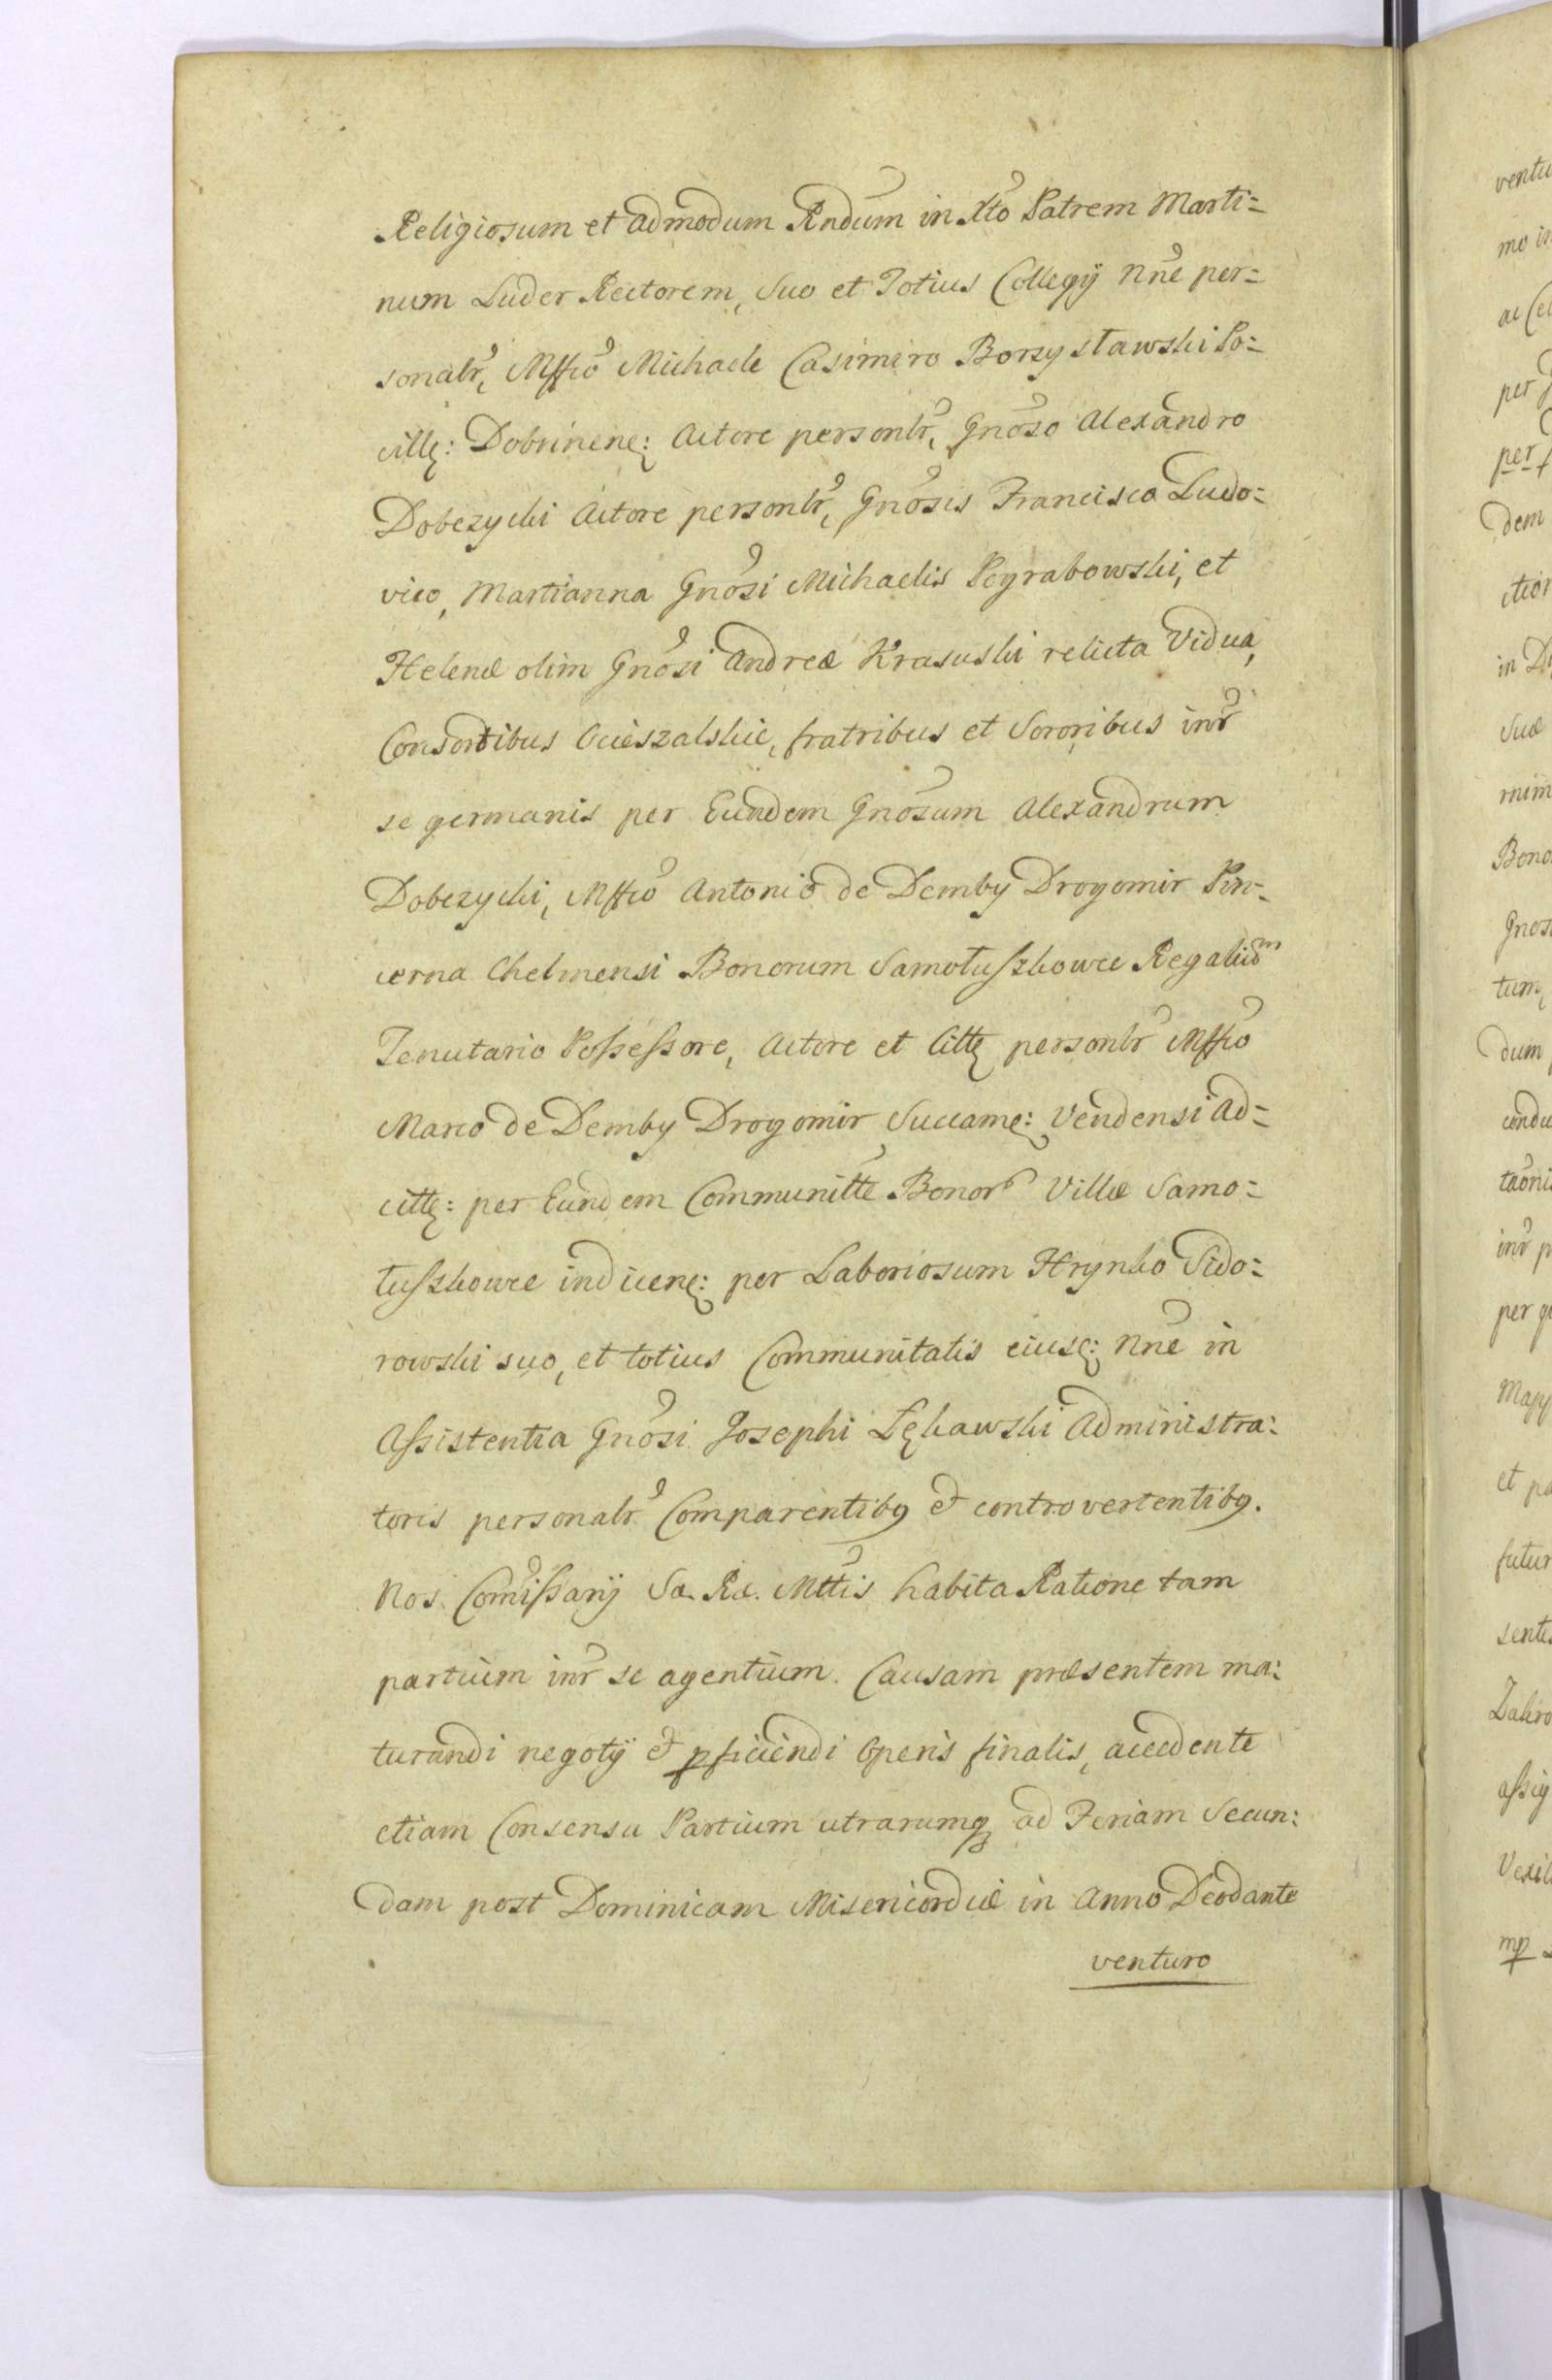 Religiosum et admodum Rndum in Xto Patrem Marti=
num Luder Rectorem, suo et Totius Collegÿ nne per=
sonalr, Mffco Michaele Casimiro Borzysławski Po=
cill: Dobrinen: Actore personlr, Gnoso Alexandro
Dobczycki Actore personlr, Gnosis Francisco Ludo=
vico, Martianna Gnosi Michaelis Pograbowski, et
Helenæ olim Gnosi Andreæ Krasuski relicta Vidua,
Consortibus Cieszalskie, fratribus et Sororibus inr
se germanis per Eundem Gnosum Alexandrum
Dobczycki, Mffco Antonio de Demby Drogomir Pin-
cerna Chelmensi Bonorum Samołuszkowce Regalium
Tenutario Possessore, Actore et Citt personlr Mffco
Marco de Demby Drogomir Succam: Vendensi Ad=
citt: per Eundem Communitte Bonor Villæ Samo=
łuszkowce indicen: per Laboriosum Hrynko Sido=
rowski suo, et totius Communitatis eiusq: nne in
Assistentia Gnosi Josephi Łękawski Administra:
toris personalr Comparentibq et controvertentibq.
Nos Comissarÿ Sæ. Ræ. Mttis habita Ratione tam
partium inr se agentium. Causam præsentem ma:
turandi negotÿ et pficiendi Operis finalis, accedente
etiam Consensu Partium utrarumq ad Feriam Secun:
dam post Dominicam Misericordiæ in Anno Deodante
venturo
ventu
per
dem
in
suæ
Bono
tum,
dum
per
et
futur